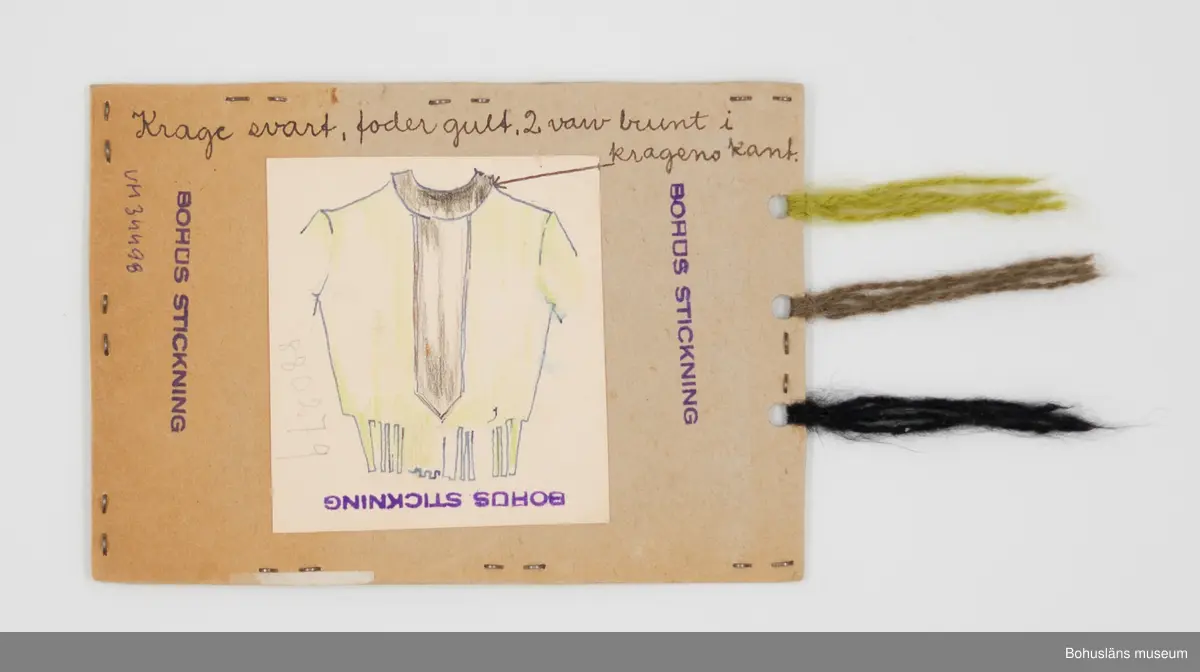 Krage svart, foder gult, 2 varv brunt i
kragens kant.
UM 34498
BOHUS STICKNING
BOHUS STICKNING
480279
BOHUS STICKNING
Bohusläns museum